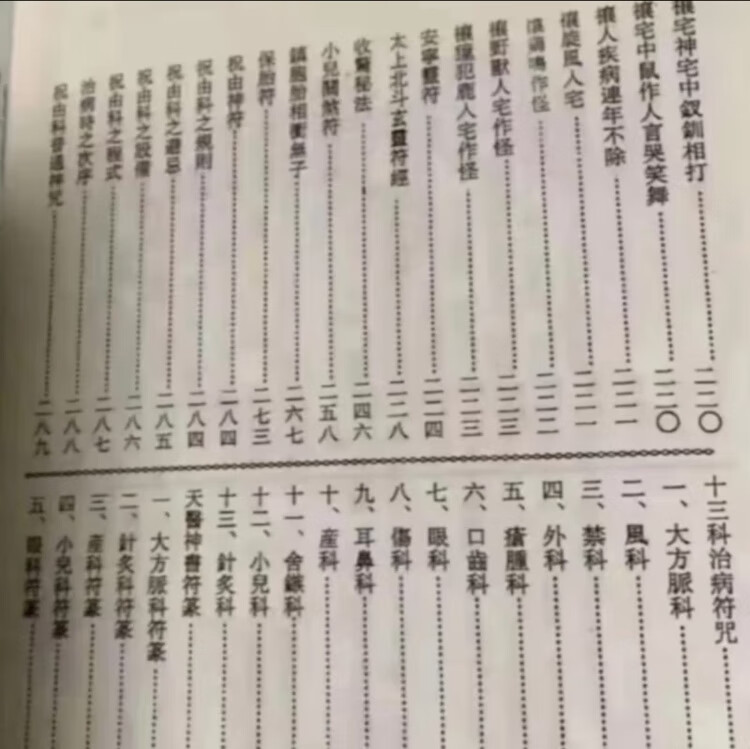 禳宅神宅中釵釧相打……二二〇
禳宅中鼠作人言哭笑舞……二二〇
禳人疾病連年不除……二二一
禳旋風入宅……二二一
鳴作怪……二二二
禳野獸入宅作怪……二二三
禳獐犯鹿入宅作怪……二二三
安寧靈符……二二四
太上北斗玄靈符經……二二八
收驚秘法……二四六
小兒關煞符……二五八
鎮胞胎相衝無子……二六七
保胎符……二七三
祝由神符……二八四
祝由科之規則……二八四
祝由科之避忌……二八五
祝由科之設備……二八六
祝由科之程式……二八七
治病時之次序……二八八
祝由科普通神咒……二八九
十三科治病符咒……
一、大方脈科……
二、風科……
三、禁科……
四、外科……
五、瘡腫科……
六、口齒科……
七、眼科……
八、傷科……
九、耳鼻科……
十、產科……
十一、金鏃科……
十二、小兒科……
十三、針炙科……
天醫神書符篆……
一、大方脈科符篆……
二、針炙科符篆……
三、產科符篆……
四、小兒科符篆……
五、眼科符篆……